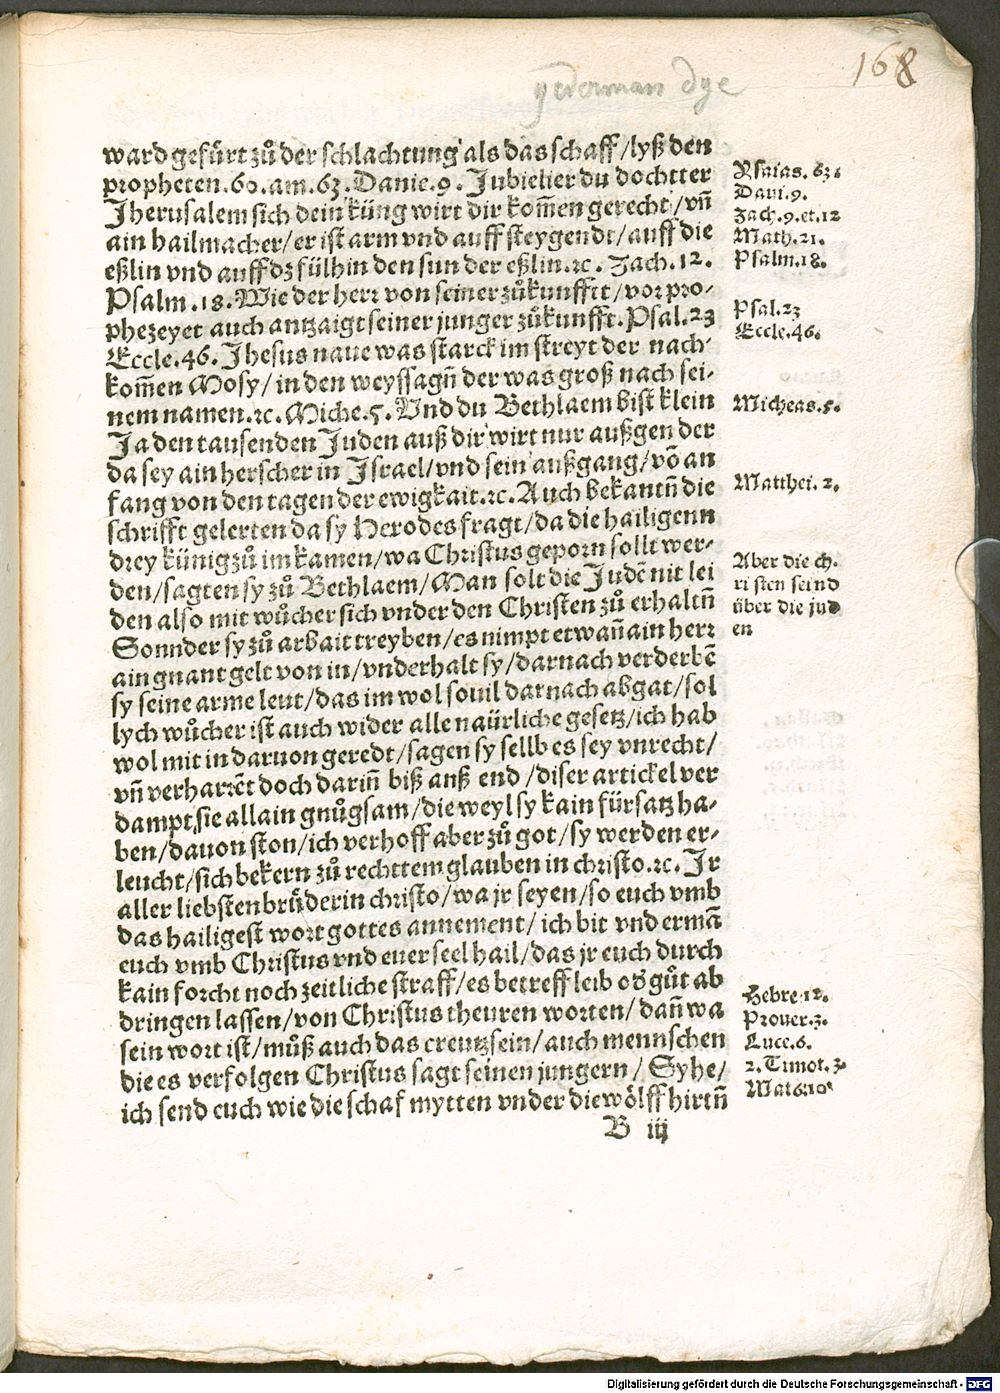 168
yederman dye
ward gefürt zů der schlachtung als das schaff/lyß den
propheten.60.am.63.Danie.9. Jubielier du dochtter
Jherusalem sich dein küng wirt dir kom̃en gerecht/vñ
ain hailmacher/er ist arm vnd auff steygendt/auff die
eßlin vnd auff dz fülhin den sun der eßlin.ꝛc. Zach.12.
Psalm.18.Wie der herꝛ von seiner zůkunfft/voꝛ pꝛo-
phezeyet auch antzaigt seiner junger zůkunfft.Psal.23
Eccle.46. Jhesus naue was starck im streyt der nach-
kom̃en Mosy/in den weyssagñ der was groß nach sei-
nem namen.ꝛc. Miche.5. Vnd du Bethlaem bist klein
Ja den tausenden Juden auß dir wirt nur außgen der
da sey ain herscher in Jsrael/vnd sein außgang/võ an
fang von den tagen der ewigkait.ꝛc. Auch bekantñ die
schrifft gelerten da sy Herodes fragt/da die hailigenn
dꝛey künig zů im kamen/wa Christus geporn sollt wer-
den/sagten sy zů Bethlaem/Man solt die Judẽ nit lei
den also mit wůcher sich vnder den Christen zů erhaltñ
Sonnder sy zů arbait treyben/es nimpt etwañ ain herꝛ
ain gnant gelt von in/vnderhalt sy/darnach verderbẽ
sy seine arme leut/das im wol souil darnach abgat/sol
lych wůcher ist auch wider alle naürliche gesetz/ich hab
wol mit in daruon geredt/sagen sy sellb es sey vnrecht/
vñ verharꝛẽt doch dariñ biß anß end/diser artickel ver
dampt sie allain gnůgsam/die weyl sy kain fürsatz ha-
ben/dauon ston/ich verhoff aber zů got/sy werden er-
leucht/sich bekern zů rechttem glauben in christo.ꝛc. Jr
aller liebsten bꝛüder in christo/wa jr seyen/so euch vmb
das hailigest wort gottes annement/ich bit vnd ermã
euch vmb Christus vnd euer seel hail/das jr euch durch
kain foꝛcht noch zeitliche straff/es betreff leib oď gůt ab
dringen lassen/von Christus theuren worten/dañ wa
sein wort ist/můß auch das creutz sein/auch mennschen
die es verfolgen Christus sagt seinen jungern/ Syhe/
ich send euch wie die schaf mytten vnder die wölff hirtñ
B iij
Esaias.63.
Dani.9.
Zach.9.et.12
Math.21.
Psalm.18.
Psal.23
Eccle.46.
Micheas.5.
Matthei.2.
Aber die ch-
risten seind
über die jud
en
Hebre.12.
Prouer.3.
Luce.6.
2.Timot.3.
Mat.6.10
Digitalisierung gefördert durch die Deutsche Forschungsgemeinschaft - DFG